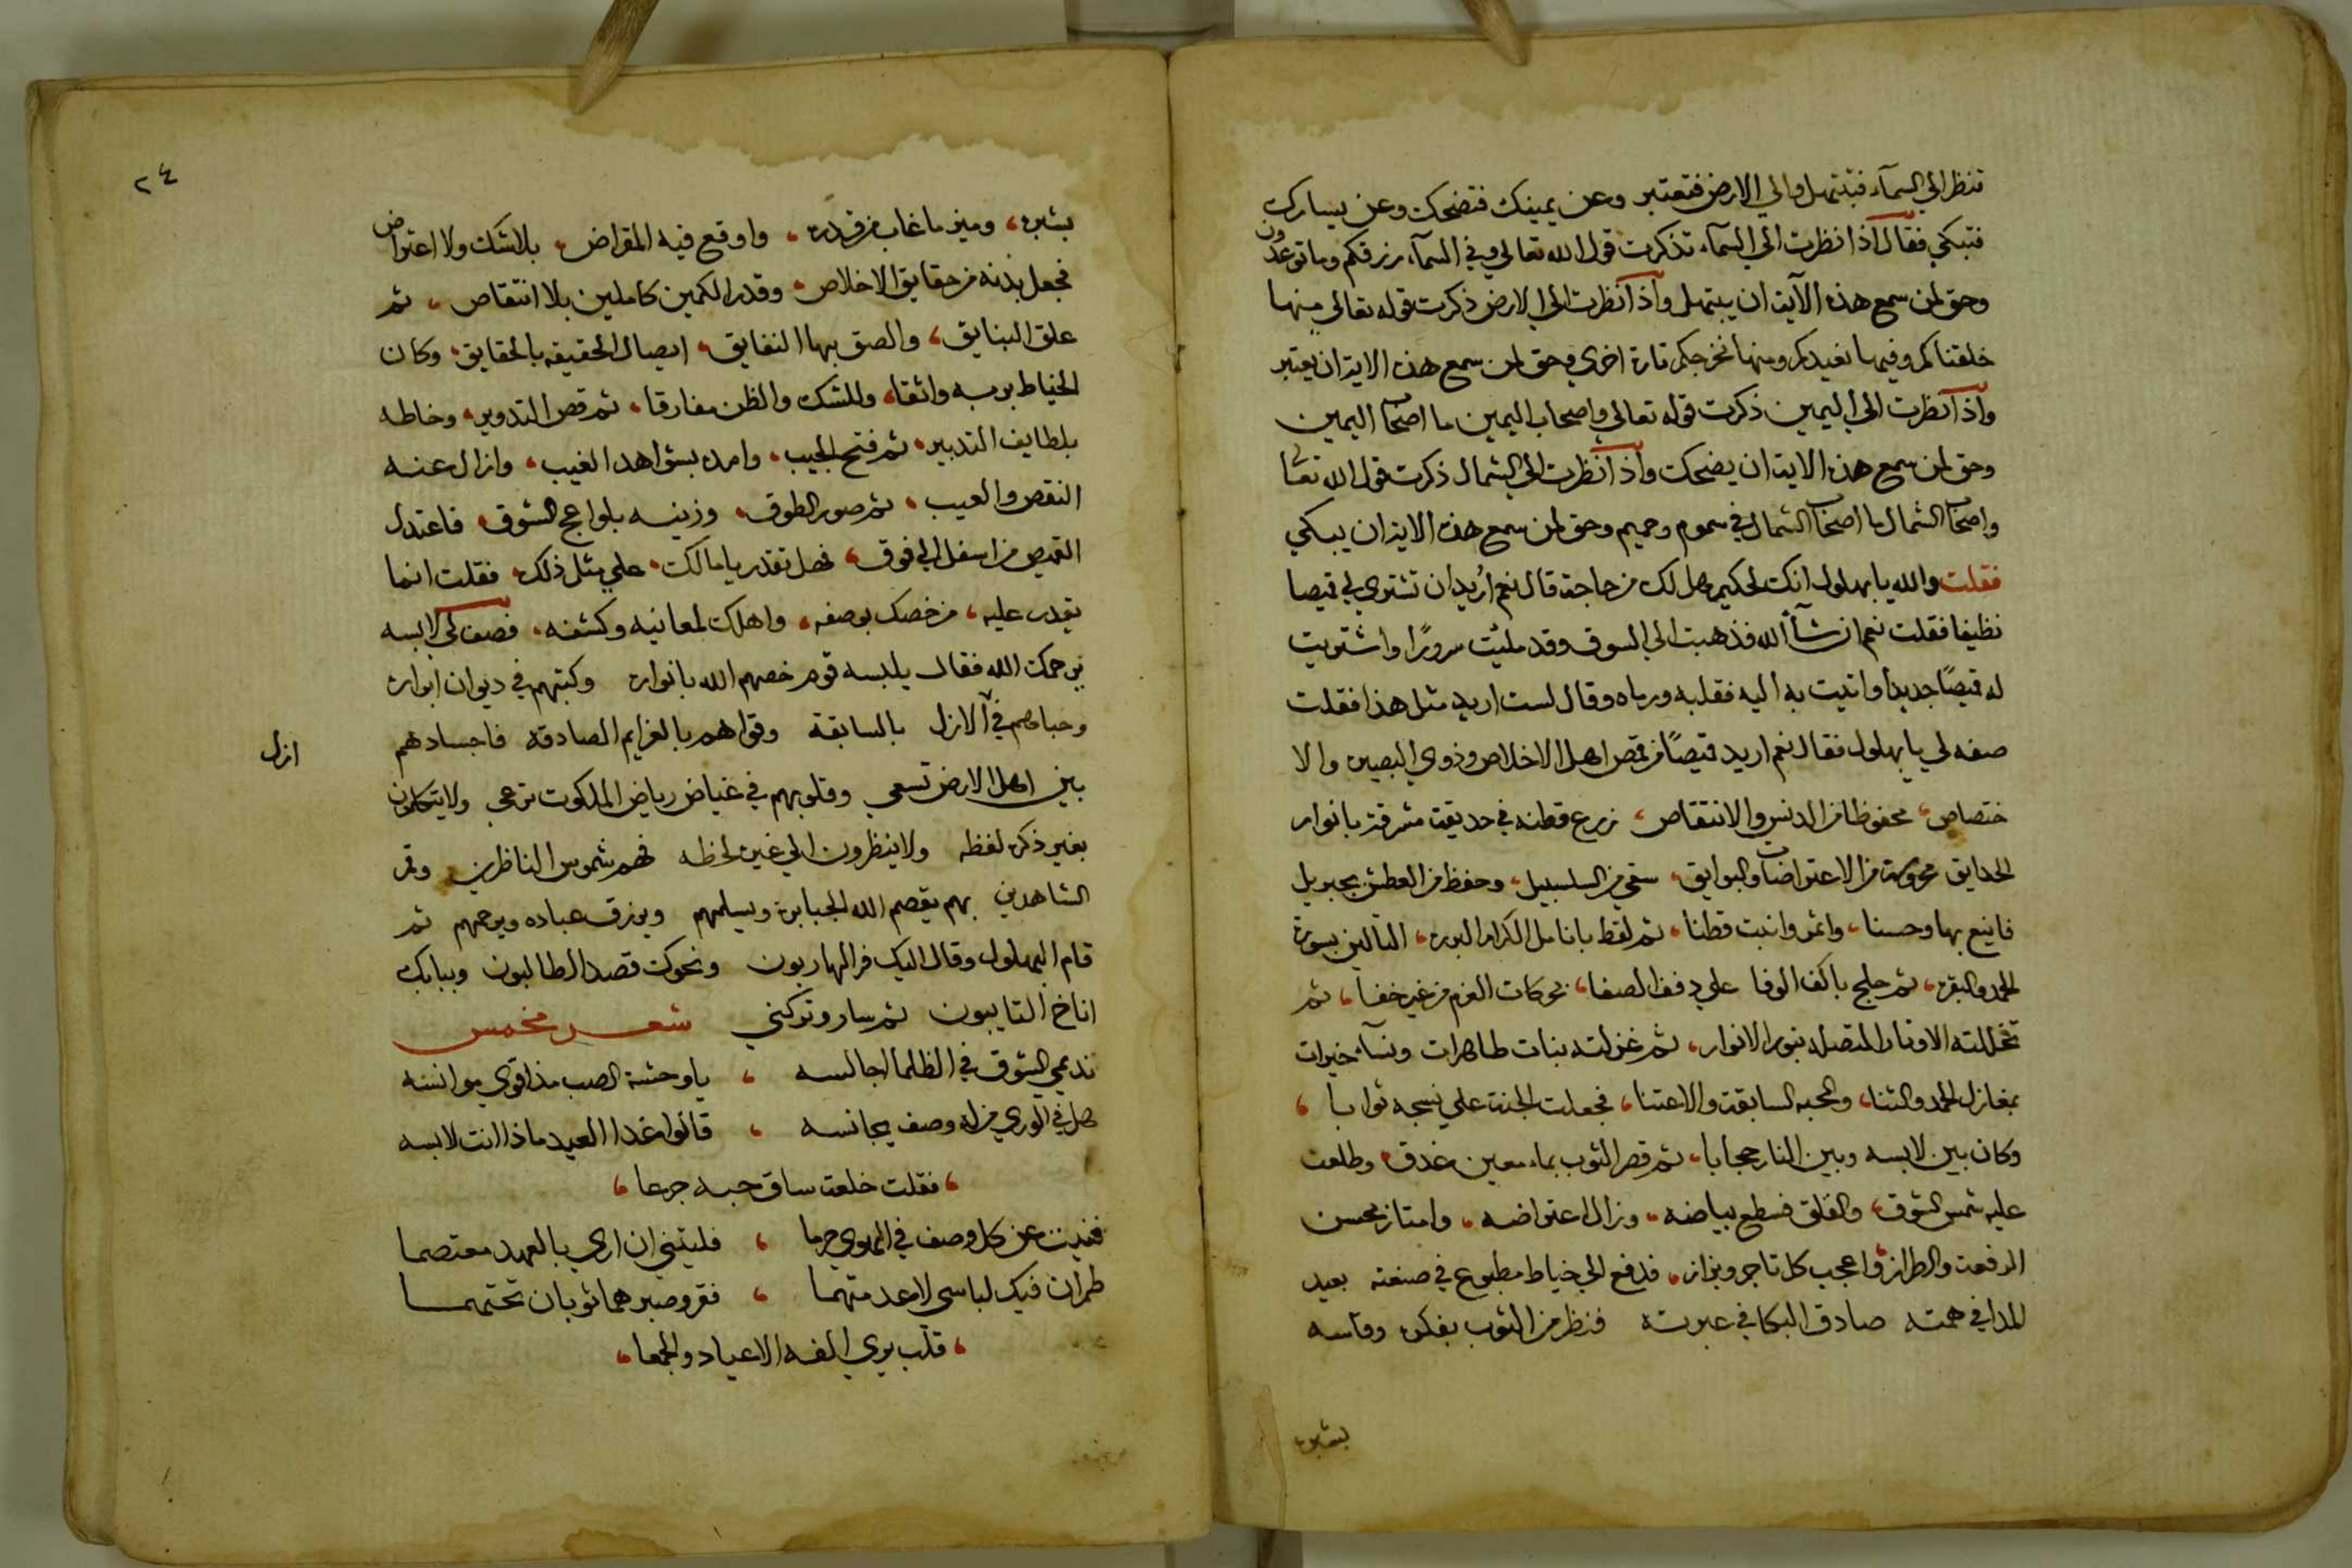 تنظر الي السمآء فتبتهل والي الارض فتعتبر وعن يمينك فتضحك وعن يسارك
فتبكي فقال اذا نظرت الي السمآء تذكرت قول الله تعالي وفي السمآء رزقكم وما توعدون
وحق لمن سمع هذه الآية ان يبتهل واذا نظرت الي الارض ذكرت قوله تعالي منها
خلقناكم وفيها نعيدكم ومنها نخرجكم تارة اخري وحق لمن سمع هذه الاية ان يعتبر
واذا نظرت الي اليمين ذكرت قوله تعالي واصحاب اليمين ما اصحاب اليمين
وحق لمن سمع هذه الاية ان يضحك واذا نظرت الي الشمال ذكرت قول الله تعالي
واصحاب الشمال ما اصحاب الشمال في سموم وحميم وحق لمن سمع هذه الاية ان يبكي
فقلت والله يا بهلول انك لحكيم هل لك من حاجة قال نعم اُريد ان تشتري لي قميصا
نظيفا فقلت نعم ان شآء الله فذهبت الي السوق وقد ملئت سرورًا واشتريت
له قميصًا جديدا واتيت به اليه فقلبه ورماه وقال لست اريد مثل هذا فقلت
صفه لي يا بهلول فقال نعم اريد قميصًا من قمص اهل الاخلاص وذوي البصيره والا
ختصاص، محفوظا من الدنس والانتقاص، زرع قطنه في حديقة مشرقة بانوار
الحدايق محروسة من الاعتراضات والبوايق، سقي من السلسبيل، وحفظ من العطش بجبريل
فاينع بها وحسنا، واثمر وانبت قطنا، ثم لقط بانامل الكرام البررة، التالين بسورة
الحمد والبقره، ثم حلج باكف الوفا علي دفف الصفا، بحركات العزم من غير خفا، ثم
تخللته الاوتار المتصله بنور الانوار، ثم غزلته بنات طاهرات ونسآء خيرات
بمغازل الحمد والثنا، والمحبه السابقة والاعتنا، فجعلت الجنة علي نسجه ثوابا،
وكان بين لابسه وبين النار حجابا، ثم قصر الثوب بماء معين غدق، وطلعت
عليه شمس الشوق، والقلق فسطع بياضه، وزال اعتراضه، وامتاز بحسن
الرفعة والطراز، واعجب كل تاجر وبزاز، فدفع الي خياط مطبوع في صنعته بعيد
المدا في همته صادق البكا في عبرته فنظر من الثوب بفكره وقاسه
بشبره
٢٤
بشبره، وميز ما غاب من قدره، واوقع فيه المقراض، بلا شك ولا اعتراض
فجعل بدنه من حقايق الاخلاص، وقدر الكمين كاملين بلا انتقاص، ثم
علق البنايق، والصق بها النفايق، ايصال الحقيقه بالحقايق، وكان
الخياط بربه واثقا، وللشك والظن مفارقا، ثم قص التدوير، وخاطه
بلطايف التدبير، ثم فتح الجيب، وامده بشواهد الغيب، وازال عنه
النقص والعيب، ثم صور الطوق، وزينه بلواعج الشوق، فاعتدل
القميص من اسفل الي فوق، فهل تقدر يا مالك، علي مثل ذلك، فقلت انما
يقدر عليه، من خصك بوصفه، واهلك لمعانيه وكشفه، فصف لي لابسه
يرحمك الله فقال يلبسه قوم خصهم الله بانواره وكتبهم في ديوان ابراره
وحباهم في الازل بالسابقة وقواهم بالعزايم الصادقه فاجسادهم
ازل
بين اهل الارض تسعي وقلوبهم في غياض رياض الملكوت ترعي ولا يتكلمون
بغير ذكره لفظه ولا ينظرون الي غيره لحظه فهم شموس الناظرين وقمر
الشاهدين بهم يقصم الله الجبابره ويسلمهم ويرزق عباده ويرحمهم ثم
قام البهلول وقال اليك فر الهاربون ونحوك قصد الطالبون وببابك
اناخ التايبون ثم سار وتركني شعر مخمس
نديمي الشوق في الظلما اجالسه، يا وحشة الصب مذ اقوي موانسه
هل في الوري من له وصف يجانسه، قالوا غدا العيد ماذا انت لابسه
، فقلت خلعة ساق حبه جرعا،
ففنيت عن كل وصف في الهوي حرما، فليتني ان اري بالعهد معتصما
طمران فيك لباسي لا عدمتهما، فقر وصبر هما ثوبان تحتهمــا
، قلب يري الفه الاعياد والجمعا،